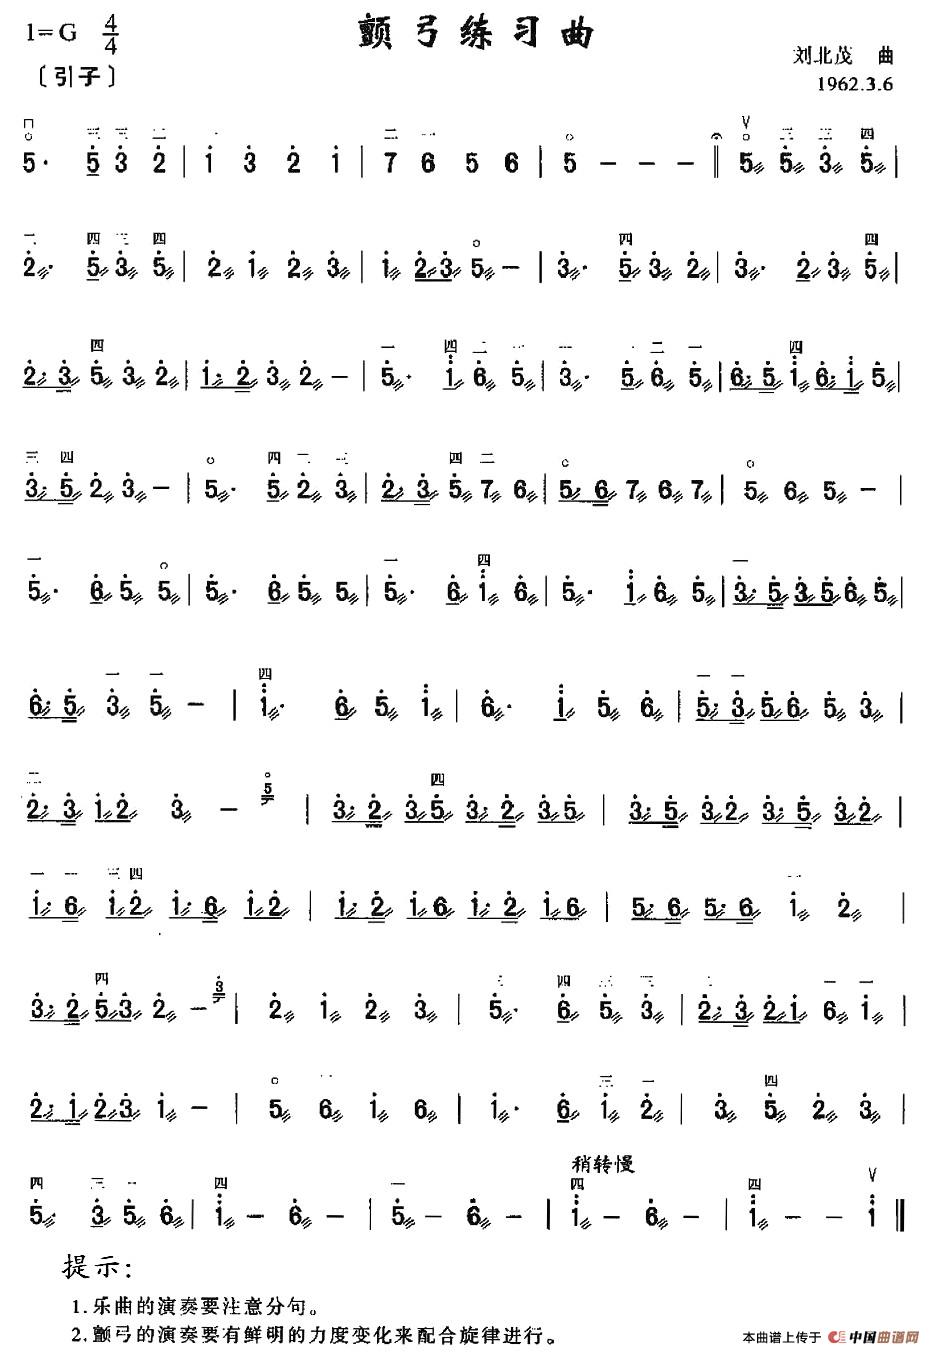 颤弓练习曲
1=G 4/4
〔引子〕
刘北茂 曲
1962.3.6
5· 5 3 2 | 1 3 2 1 | 7 6 5 6 | 5 - - - ‖ 5 5 3 5 |
2· 5 3 5 | 2 1 2 3 | 1 2 3 5 - | 3· 5 3 2 | 3· 2 3 5 |
2· 3 5 3 2 | 1· 2 3 2 - | 5· 1 6 5 | 3· 5 6 5 | 6· 5 1 6· 1 5 |
3· 5 2 3 - | 5· 5 2 3 | 2· 3 5 7 6 | 5· 6 7 6 7 | 5 6 5 - |
5· 6 5 5 | 5· 6 5 5 | 5· 6 1 6 | 5· 1 6 5 | 3· 5 3 5 6 5 |
6· 5 3 5 - | 1· 6 5 1 | 6· 1 5 6 | 5· 3 5 6 5 3 |
2· 3 1 2 3 - 5 | 3· 2 3 5 3· 2 3 5 | 3· 5 3 2 3· 5 3 2 |
1· 6 1 2 1· 6 1 2 | 1· 2 1 6 1· 2 1 6 | 5· 6 5· 6 1 2 |
3· 2 5 3 2 - 3 | 2 1 2 3 | 5· 6 5 3 | 2· 3 2 1 6 1 |
2· 1 2 3 1 - | 5 6 1 6 | 1· 6 1 2 | 3 5 2 3 |
稍转慢
5· 3 5 6 | 1 - 6 - | 5 - 6 - | 1 - 6 - | 1 - - 1 ‖
提示：
1.乐曲的演奏要注意分句。
2.颤弓的演奏要有鲜明的力度变化来配合旋律进行。
本曲谱上传于 中国曲谱网